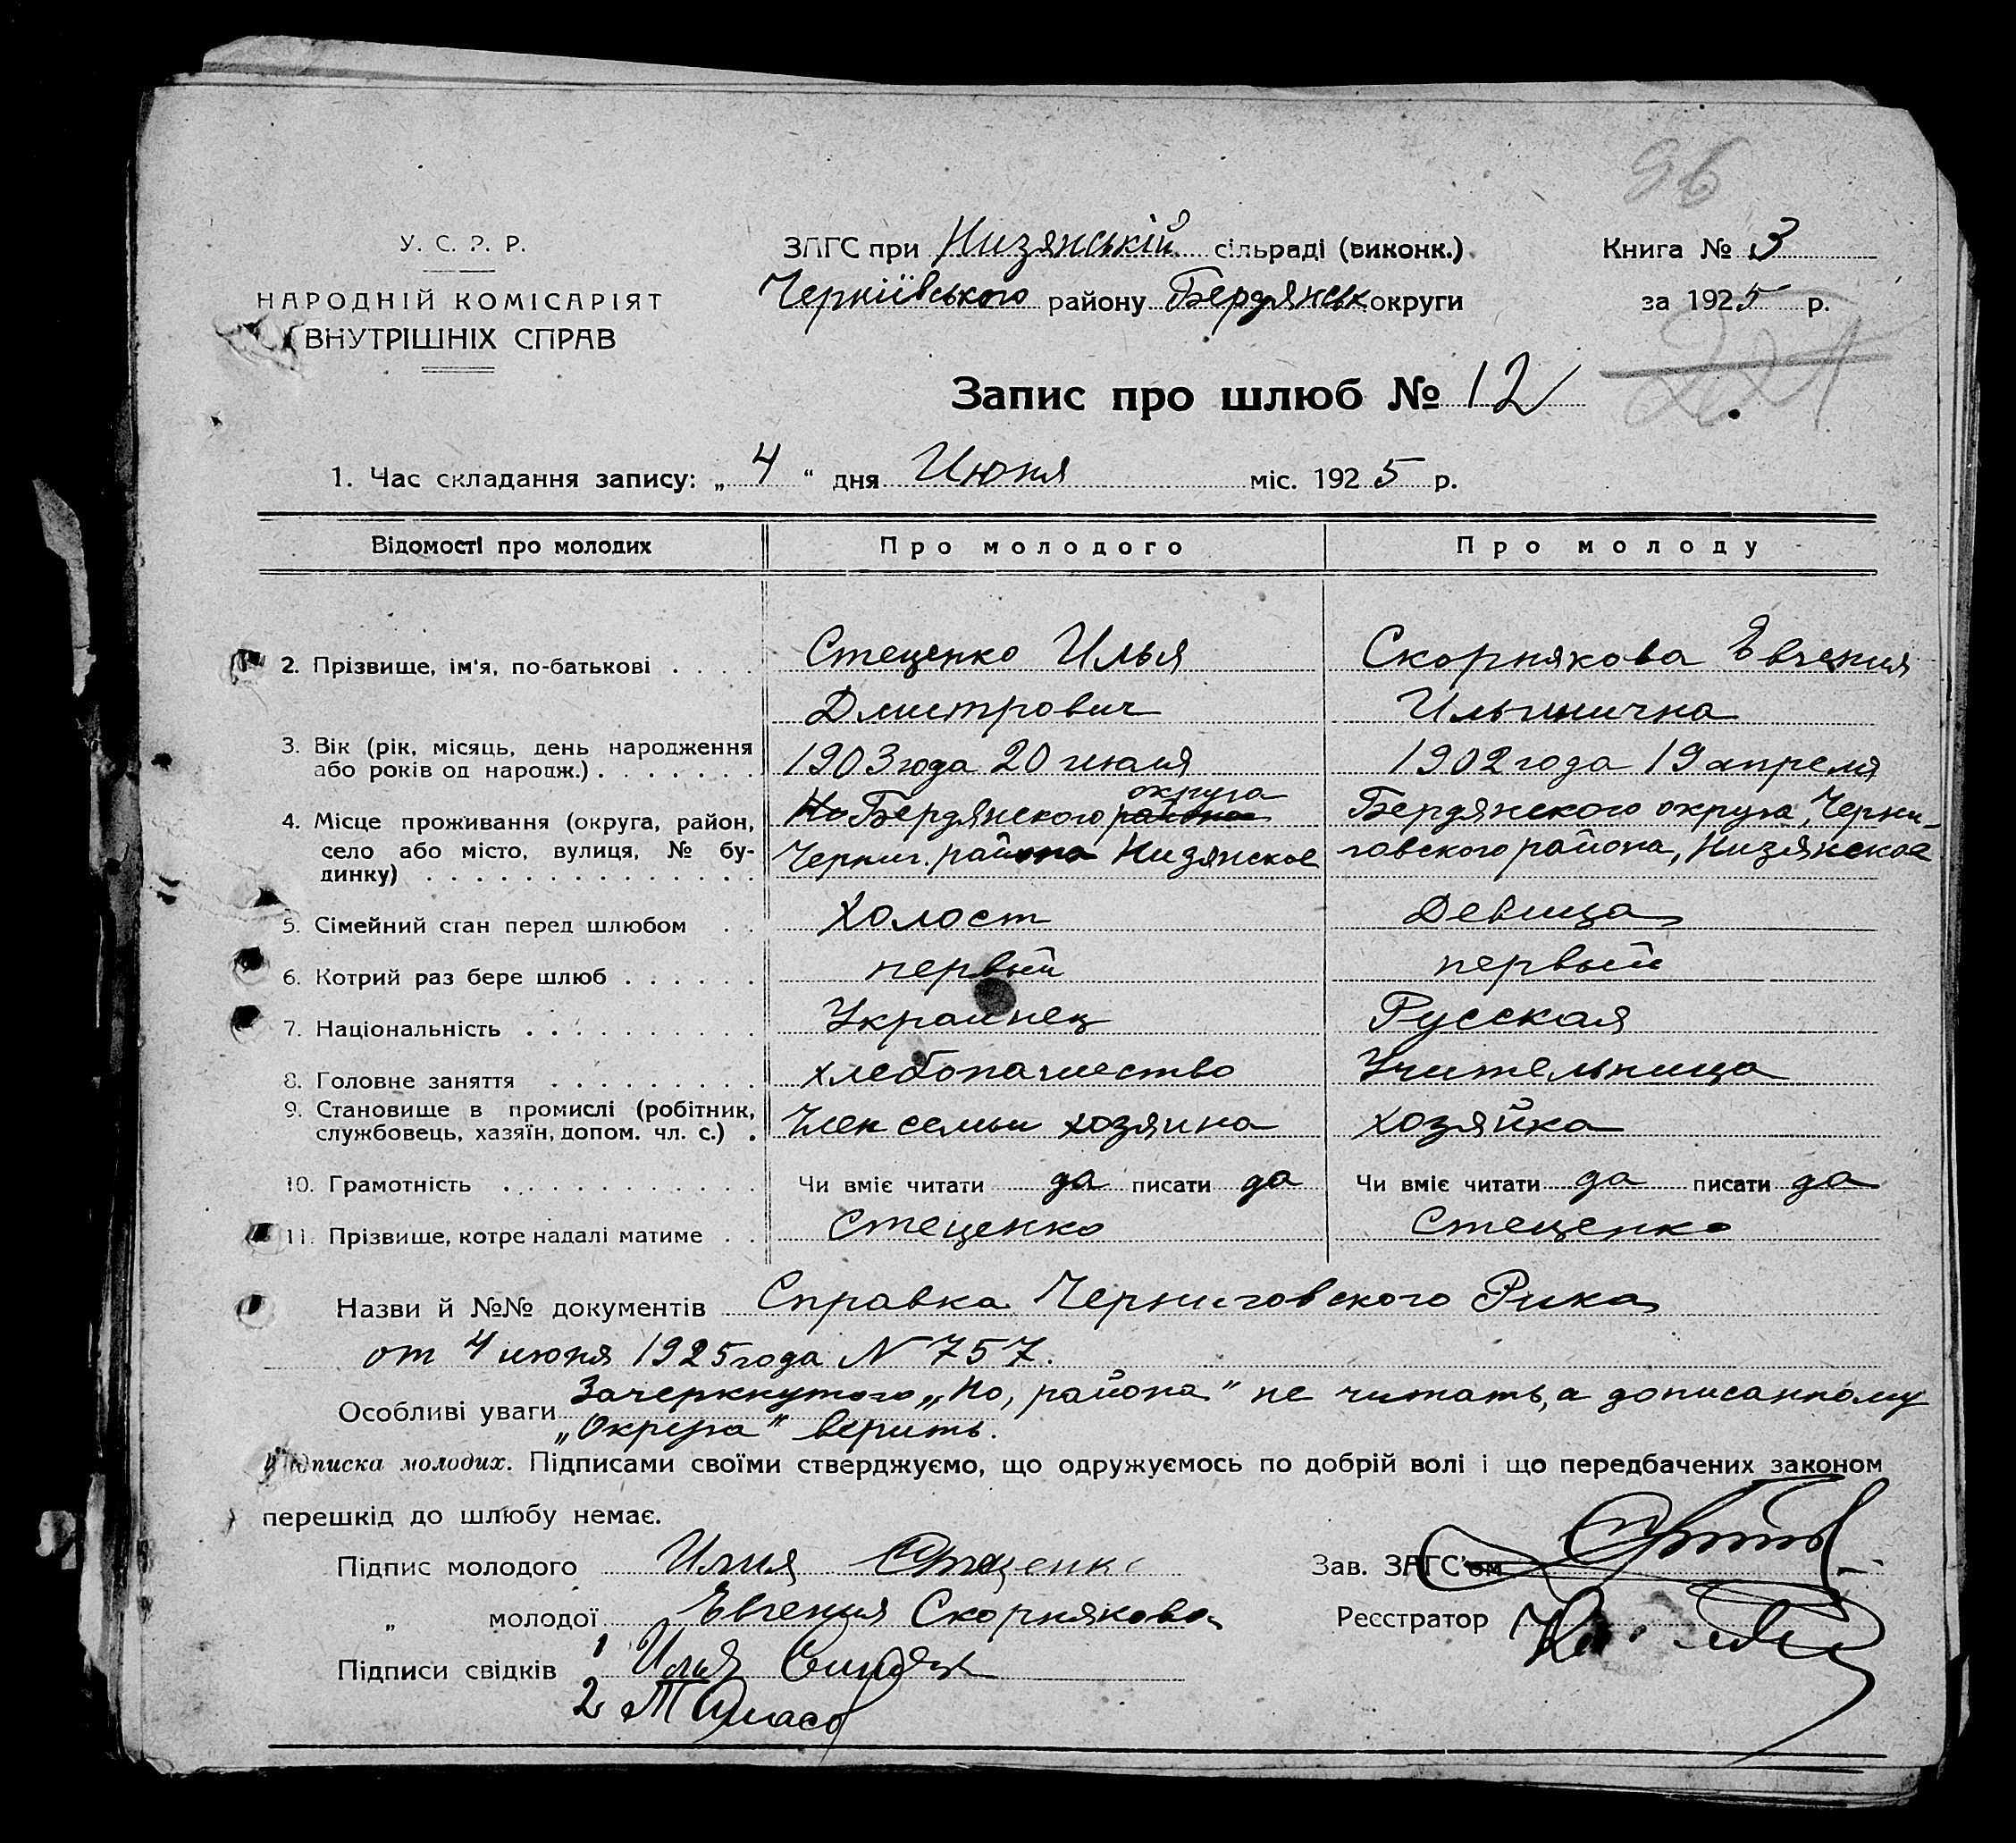 96
У. С. Р. Р.
НАРОДНІЙ КОМІСАРІЯТ
ВНУТРІШНІХ СПРАВ
ЗАГС при Низянській сільраді (виконк.)
Черніївського району Бердянськ округи
Книга № 3
за 1925 р.
221
Запис про шлюб № 12
1. Час складання запису: „ 4 “ дня Июня міс. 1925 р.
Відомості про молодих Про молодого Про молоду
2. Прізвище, ім'я, по-батькові . . . . Стеценко Илья Скорнякова Евгения
Дмитрович Ильинична
3. Вік (рік, місяць, день народження
або років од народж.) . . . . . . . 1903 года 20 июля 1902 года 19 апреля
округа
4. Місце проживання (округа, район, Но Бердянского района Бердянского округа, Черни-
село або місто, вулиця, № бу- Черниг. района Низянское говского района, Низянское
динку) . . . . . . . . . . . . . .
5. Сімейний стан перед шлюбом . . Холост Девица
6. Котрий раз бере шлюб . . . . . . первый первый
7. Національність . . . . . . . . . . Украинец Русская
8. Головне заняття . . . . . . . . . хлебопашество Учительница
9. Становище в промислі (робітник, Член семьи хозяина хозяйка
службовець, хазяїн, допом. чл. с.) .
10. Грамотність . . . . . . . . . . . Чи вміє читати да писати да Чи вміє читати да писати да
11. Прізвище, котре надалі матиме . . Стеценко Стеценко
Назви й №№ документів Справка Черниговского Рика
от 4 июня 1925 года N 757.
Особливі уваги Зачеркнутого „Но, района“ не читать, а дописанному
„Округа“ верить.
Підписка молодих. Підписами своїми стверджуємо, що одружуємось по добрій волі і що передбачених законом
перешкід до шлюбу немає.
Підпис молодого Илия Стеценк
Зав. ЗАГС'ом
„ молодої Евгения Скорнякова
Реєстратор
Підписи свідків 1 Илия
2 М